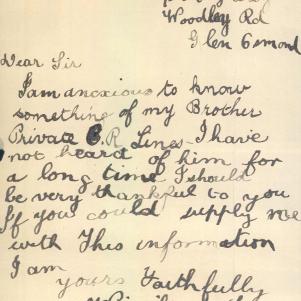 Woodley Rd
Glen Osmond
Dear Sir
I am anxious to know
something of my Brother
Private C.R Lines. I have
not heard of him for
a long time I should
be very thankful to you
If you could supply me
with This information
I am
yours Faithfully